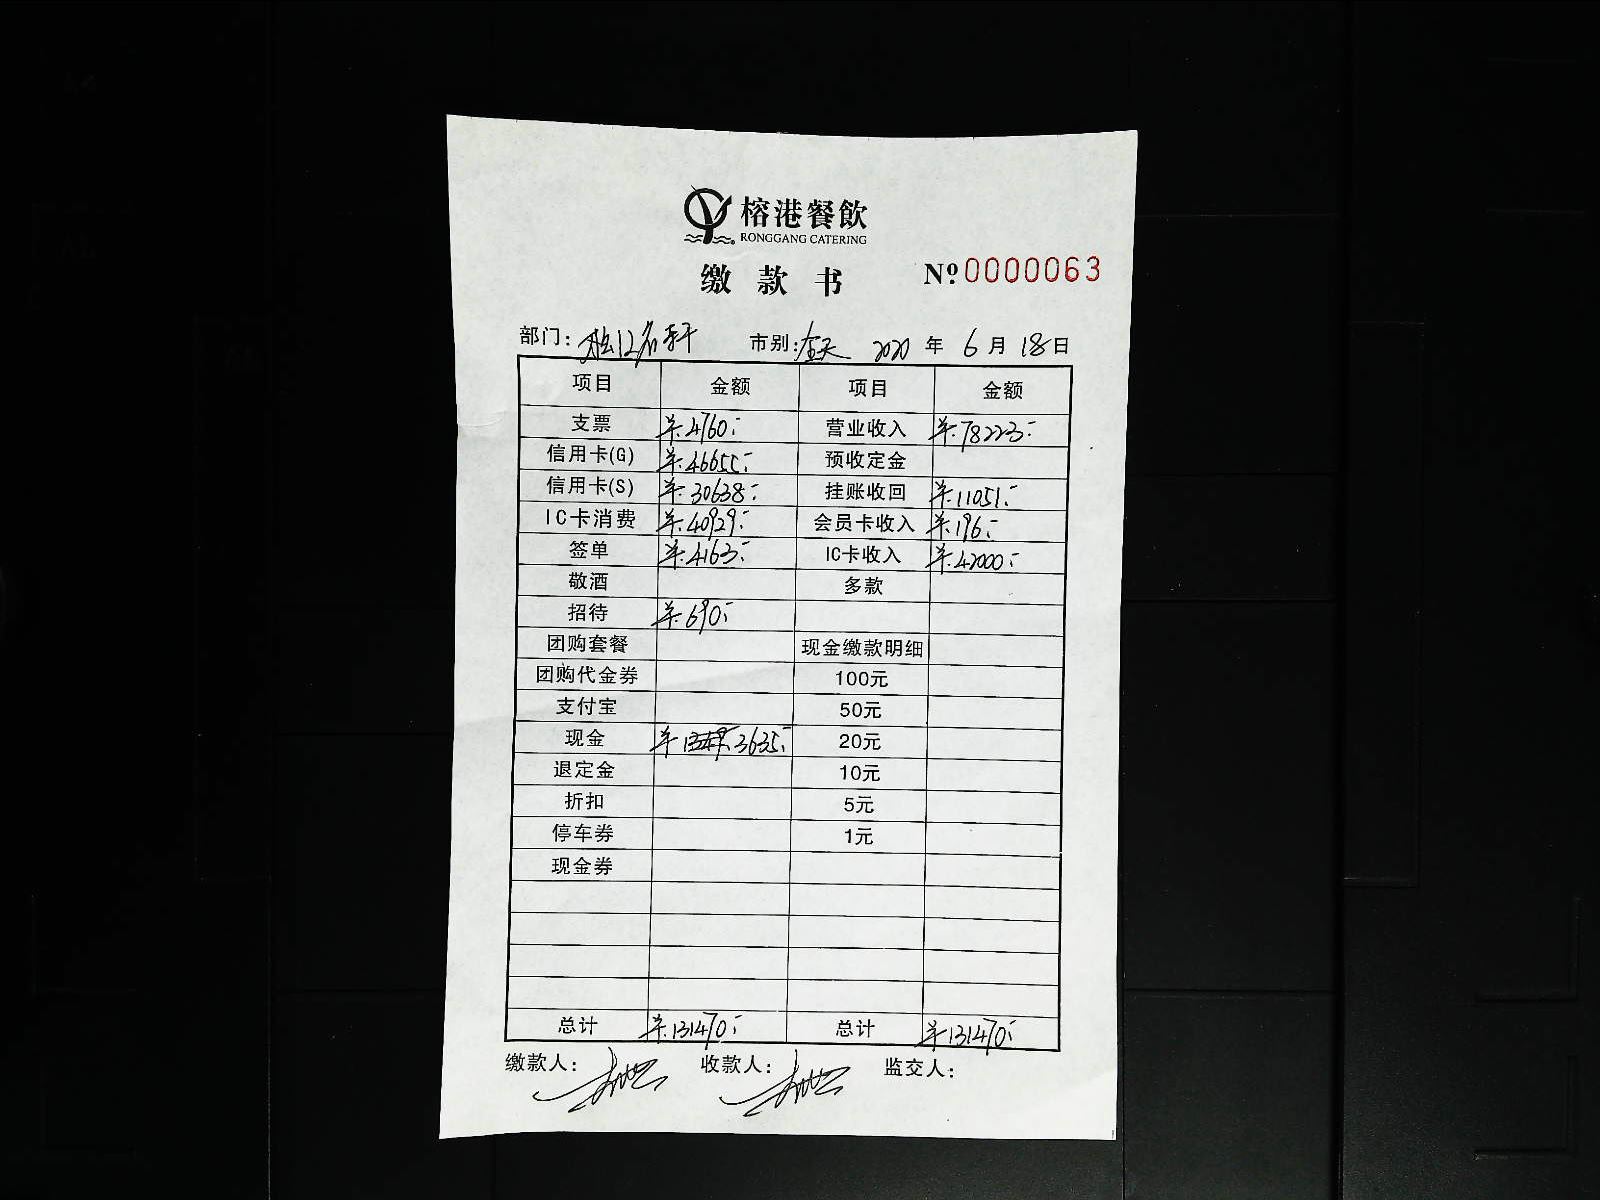 榕港餐飲
RONGGANG CATERING
缴款书 №0000063
部门: 市别:全天 2020年6月18日
项目 金额 项目 金额
支票 ¥:4760:- 营业收入 ¥:78223:-
信用卡(G) ¥:46655:- 预收定金
信用卡(S) ¥:30638:- 挂账收回 ¥:11051:-
IC卡消费 ¥:40929:- 会员卡收入 ¥:196:-
签单 ¥:4163:- IC卡收入 ¥:42000:-
敬酒 多款
招待 ¥:690:-
团购套餐 现金缴款明细
团购代金券 100元
支付宝 50元
现金 ¥ 3635:- 20元
退定金 10元
折扣 5元
停车券 1元
现金券
总计 ¥:131470:- 总计 ¥:131470:-
缴款人: 收款人: 监交人: